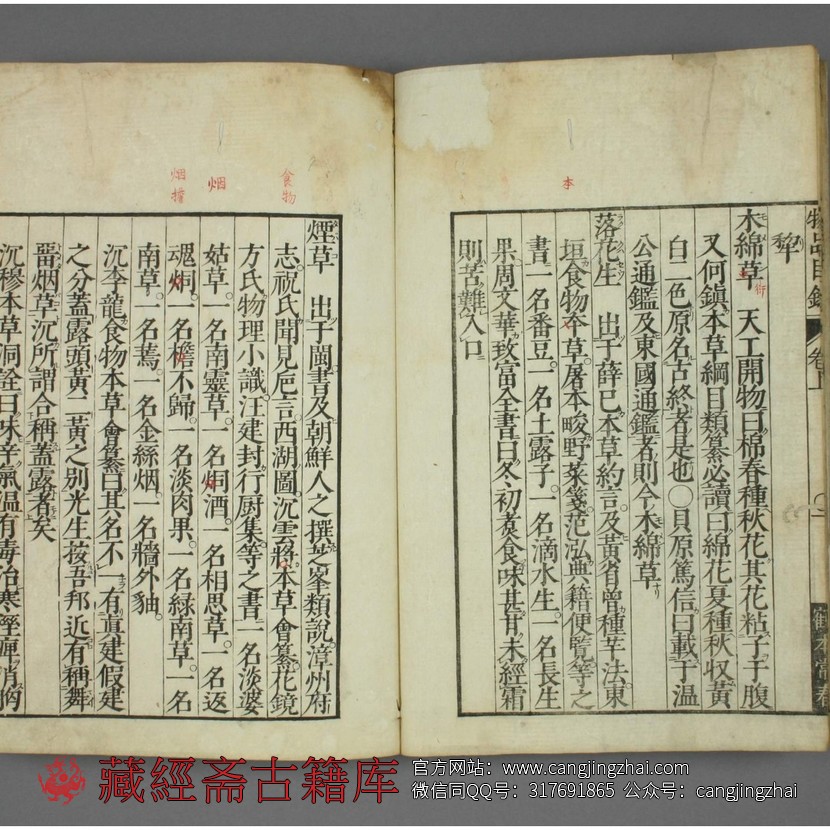 物品目錄 卷上
木綿草 天工開物曰棉春種秋花其花粘子于腹
又何鎮本草綱目類纂必讀曰綿花夏種秋収黃
白二色原名古終者是也〇貝原篤信曰載于温
公通鑑及東國通鑑者則今木綿草
落花生 出于薛已本草約言及黃省曾種芋法東
垣食物本草屠本畯野菜箋范泓典籍便覽等之
書一名番豆一名土露子一名滴水生一名長生
果周文華致富全書曰冬初煮食味甚甘未經霜
則苦難入口
本
煙草 出于閩書及朝鮮人之撰芝峯類說漳州府
志祝氏聞見巵言西湖圖沉雲蔣本草會纂花鏡
方氏物理小識汪建封行厨集等之書一名淡婆
姑草一名南靈草一名烟酒一名相思草一名返
魂烟一名擔不歸一名淡肉果一名緑南草一名
南草一名蔫一名金絲烟一名牆外䖝
沉李龍食物本草會纂曰其名不一有眞建假建
之分蓋露頭黃二黃之别光生按吾邦近有稱舞
畱烟草沉所謂合稱蓋露者矣
沉穆本草洞詮曰味辛氣温有毒治寒溼痺消胸
食物
烟
烟擔
藏經斋古籍库
官方网站：www.cangjingzhai.com
微信同QQ号：317691865 公众号：cangjingzhai